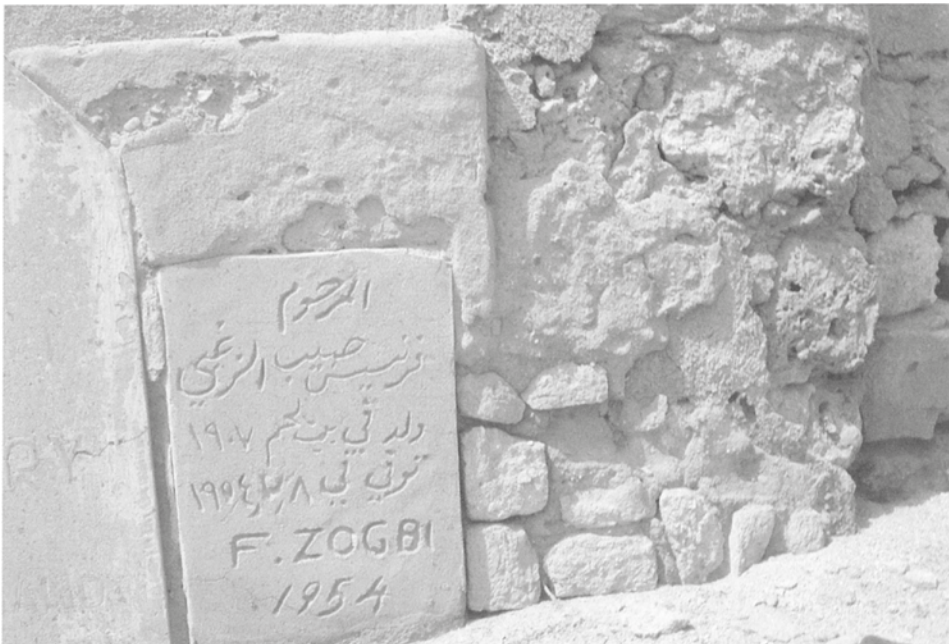 المرحوم
فرنسيس حبيب الزغبي
ولد في بيت لحم ١٩٠٧
توفي في ١٩٥٤
F. ZOGBI
1954